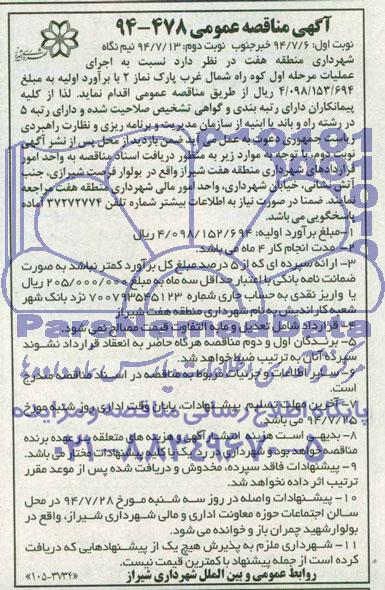 آگهی مناقصه عمومی ۴۷۸-۹۴
نوبت اول: ۹۴/۷/۶ خبرجنوب نوبت دوم: ۹۴/۷/۱۳ نیم نگاه
شهرداری منطقه هفت در نظر دارد نسبت به اجرای
عملیات مرحله اول کوه راه شمال غرب پارک نماز ۲ با برآورد اولیه به مبلغ
۴/۰۹۸/۱۵۳/۶۹۴ ریال از طریق مناقصه عمومی اقدام نماید. لذا از کلیه
پیمانکاران دارای رتبه بندی و گواهی تشخیص صلاحیت شده و دارای رتبه ۵
در رشته راه و باند یا ابنیه از سازمان مدیریت و برنامه ریزی و نظارت راهبردی
ریاست جمهوری دعوت به عمل می آید ضمن بازدید از محل پس از نشر آگهی
نوبت دوم، با توجه به موارد زیر به منظور دریافت اسناد مناقصه به واحد امور
قراردادهای شهرداری منطقه هفت شیراز واقع در بولوار فرصت شیرازی، جنب
آتش نشانی، خیابان شهرداری، واحد امور مالی شهرداری منطقه هفت مراجعه
نمایند. ضمنا در صورت نیاز به اطلاعات بیشتر شماره تلفن ۳۷۲۷۲۷۷۴ آماده
پاسخگویی می باشد.
۱-مبلغ برآورد اولیه: ۴/۰۹۸/۱۵۲/۶۹۴ ریال
۲- مدت انجام کار ۴ ماه می باشد.
۳- ارائه سپرده ای که از ۵ درصد مبلغ کل برآورد کمتر نباشد به صورت
ضمانت نامه بانکی با اعتبار حداقل سه ماه به مبلغ ۲۰۵/۰۰۰/۰۰۰ ریال
یا واریز نقدی به حساب جاری شماره ۷۰۰۷۹۳۵۳۵۱۲۳ نزد بانک شهر
شعبه کاراندیش به نام شهرداری منطقه هفت شیراز
۴- قرارداد شامل تعدیل و مابه التفاوت قیمت مصالح نمی شود.
۵- برندگان اول و دوم مناقصه هرگاه حاضر به انعقاد قرارداد نشوند
سپرده آنان به ترتیب ضبط خواهد شد.
۶- سایر اطلاعات و جزئیات مربوط به مناقصه در اسناد مناقصه مندرج
است.
۷- آخرین مهلت تسلیم پیشنهادات، پایان وقت اداری روز شنبه مورخ
۹۴/۷/۲۵ می باشد.
۸- بدیهی است هزینه انتشار آگهی و هزینه های متعلقه بر عهده برنده
مناقصه خواهد بود و شهرداری در رد کلیه پیشنهادات مختار می باشد.
۹- پیشنهادات فاقد سپرده، مخدوش و دریافت شده پس از موعد مقرر
ترتیب اثر داده نخواهد شد.
۱۰- پیشنهادات واصله در روز سه شنبه مورخ ۹۴/۷/۲۸ در محل
سالن اجتماعات حوزه معاونت اداری و مالی شهرداری شیراز، واقع در
بولوار شهید چمران باز و خوانده می شود.
۱۱- شهرداری ملزم به پذیرش هیچ یک از پیشنهادهایی که دریافت
کرده است از جمله پیشنهاد با کمترین قیمت نیست.
روابط عمومی و بین الملل شهرداری شیراز «۱۰۵-۳۷۳۴»
پایگاه اطلاع رسانی مناقصه و مزایده
۰۲۱-۸۸۳۴۹۶۷۰-۵